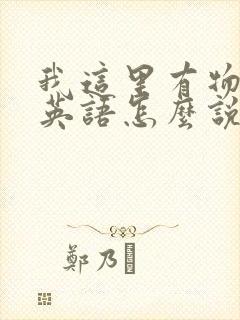 我這里有物
英語怎麼說
鄭乃